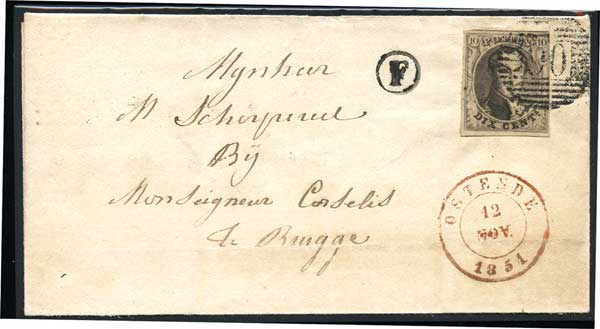 Mynheer
F
M Scherpereel
By
Monseigneur Corselis
te Brugge
10 POSTES 10
DIX CENTS
OSTENDE
12
NOV.
1851